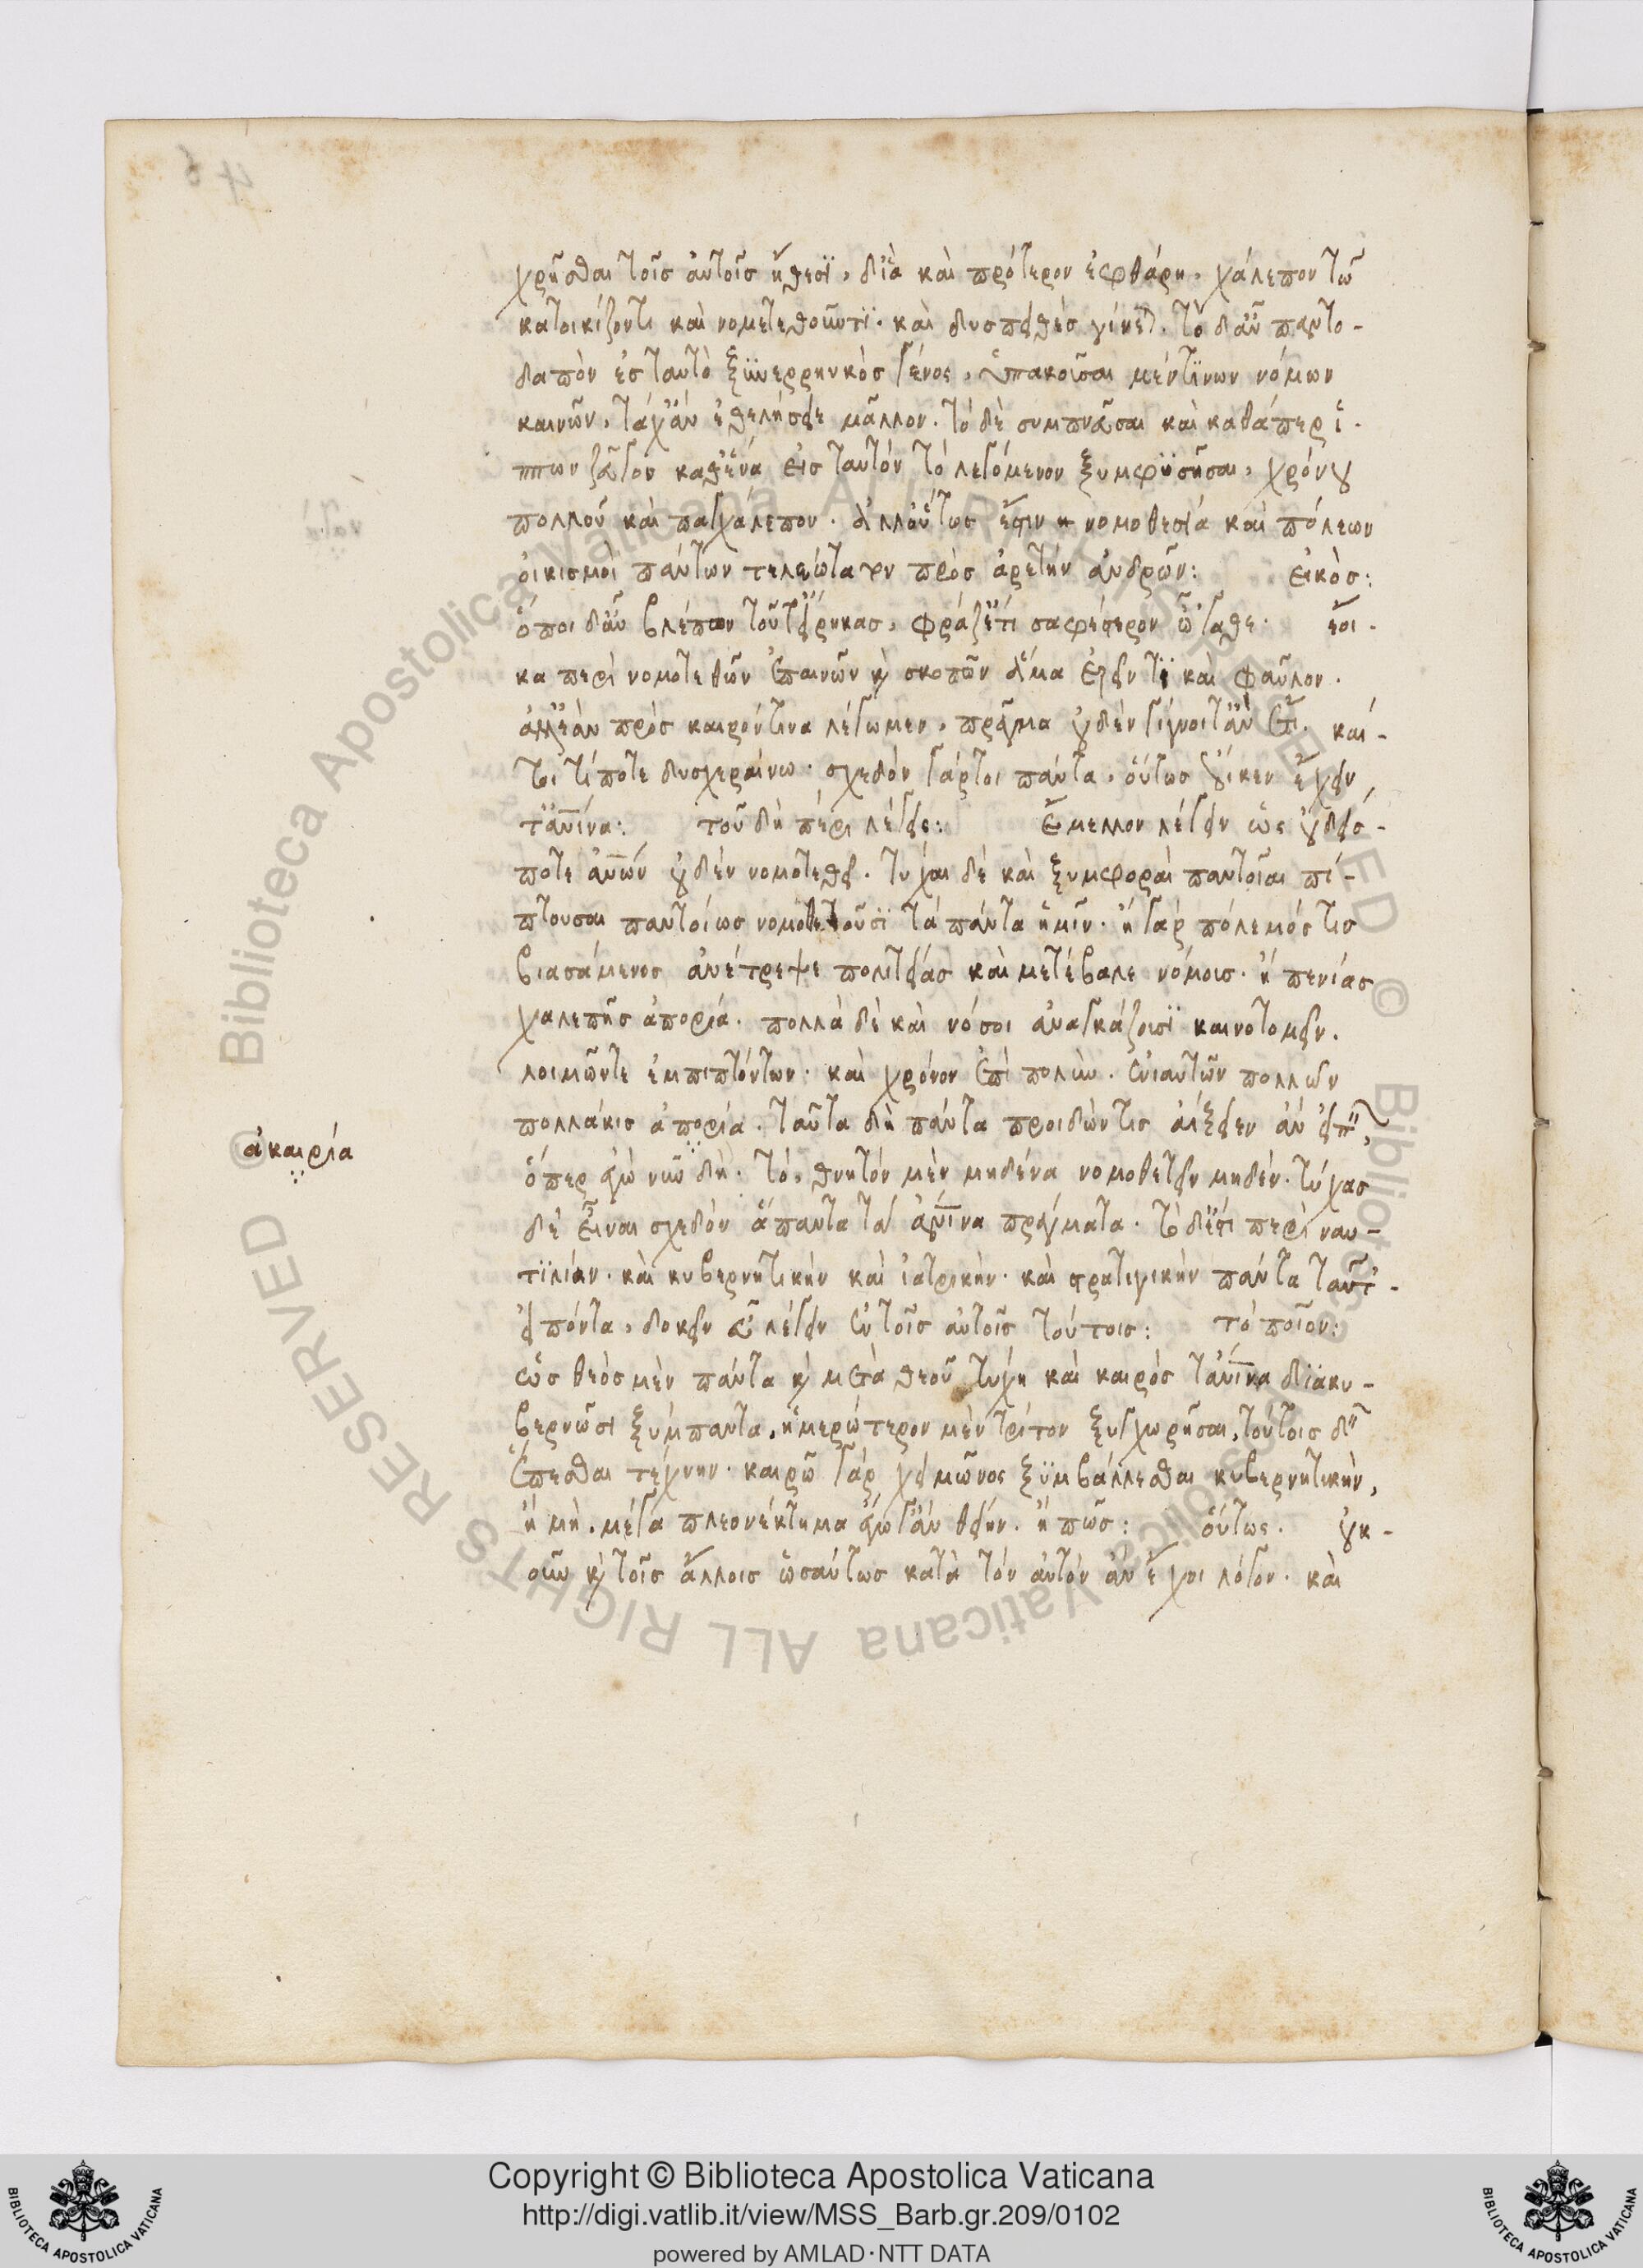 χρῆσθαι τοῖς αὐτοῖς ἤθεσϊ, δι' ἃ καὶ πρότερον ἐφθάρη, χάλεπον τῶ
κατοικίζοντι καὶ νομετεθοῦντϊ· καὶ δυσπειθὲς γίνεται. τὸ δ' αὖ παντο-
δαπὸν ἐς ταυτὸ ξϋνερρηνκὸς γένος, ὑπακοῦσαι μέν τϊνων νόμων
καινῶν, τάχ' ἂν ἐθελήσειε μᾶλλον. τὸ δὲ συμπνεῦσαι καὶ καθάπερ ἵ-
ππων ζεῦγον καθ' ἕνα εἰς ταυτόν τὸ λεγόμενον ξυμφϋσῆσαι, χρόνου
πολλοῦ καὶ παγχάλεπον. ἀλλ' ὄντως ἔστιν ἡ νομοθεσία καὶ πόλεων
οἰκισμοὶ πάντων τελεώτατον πρὸς ἀρετὴν ἀνδρῶν: εἰκὸς:
ὅποι δ' αὖ βλέπων τοῦτ' εἴρηκας, φράζ' ἔτι σαφέστερον ὦ 'γαθε. ἔοι-
κα περὶ νομοτεθῶν ἐπαινῶν καὶ σκοπῶν ἅμα ἐρεῖν τϊ καὶ φαῦλον.
ἀλλ' ἐὰν πρὸς καιρόν τινα λέγωμεν, πρᾶγμα οὐδὲν γίγνοιτ' ἂν ἔτι. καί-
τοι τί ποτε δυσχεραίνω· σχεδὸν γάρ τοι πάντα, οὕτως ἔοικεν ἔχειν
τἀνθρώπινα: τοῦ δὴ πέρι λέγεις: ἔμελλον λέγειν ὡς οὐδείς-
ποτε ἀνθρώπων οὐδὲν νομοτεθεῖ. τύχαι δὲ καὶ ξυμφοραὶ παντοῖαι πί-
πτουσαι παντοίως νομοθετοῦσϊ τὰ πάντα ἡμῖν. ἢ γὰρ πόλεμός τις
βιασάμενος ἀνέτρεψε πολιτείας καὶ μετέβαλε νόμοις. ἢ πενίας
χαλεπῆς ἀπορία. πολλὰ δὲ καὶ νόσοι ἀναγκάζοισϊ καινοτομεῖν.
λοιμῶν τε ἐμπιπτόντων. καὶ χρόνον ἐπὶ πολὺν. ἐνιαυτῶν πολλῶν
πολλάκις ἀπορία. ταῦτα δὴ πάντα προιδών τις ἀίξειεν ἂν εἰπεῖν,
ἀκαιρία
ὅπερ ἐγὼ νῦν δὴ. τὸ, θνητὸν μὲν μηδένα νομοθετεῖν μηδὲν. τύχας
δὲ εἶναι σχεδὸν ἅπαντα τὰ ἀνθρώπινα πράγματα. τὸ δ' ἔστι περὶ ναυ-
τϊλίαν. καὶ κυβερνητικὴν καὶ ἰατρικὴν. καὶ στρατιγικὴν πάντα ταῦτ'-
εἰπόντα, δοκεῖν εὖ λέγειν ἐν τοῖς αὐτοῖς τούτοις: τὸ ποῖον:
ὡς θεὸς μὲν πάντα καὶ μετὰ θεοῦ τύχη καὶ καιρὸς τἀνθρώπινα διακυ-
βερνῶσι ξύμπαντα, ἡμερώτερον μὲν τρίτον ξυγχωρῆσαι, τούτοις δεῖ
ἕπεσθαι τέχνην. καιρῶ γὰρ χειμῶνος ξϋμβάλλεσθαι κυβερνητικὴν,
ἢ μὴ. μέγα πλεονέκτημα ἔγωγ' ἂν θείην. ἢ πῶς: οὕτως. οὐκ-
οῦν καὶ τοῖς ἄλλοις ὡσαύτως κατὰ τὸν αὐτὸν ἂν ἔχοι λόγον. καὶ
Copyright © Biblioteca Apostolica Vaticana
http://digi.vatlib.it/view/MSS_Barb.gr.209/0102
powered by AMLAD·NTT DATA
BIBLIOTECA APOSTOLICA VATICANA
BIBLIOTECA APOSTOLICA VATICANA
© Biblioteca Apostolica Vaticana ALL RIGHTS RESERVED © Biblioteca Apostolica Vaticana ALL RIGHTS RESERVED